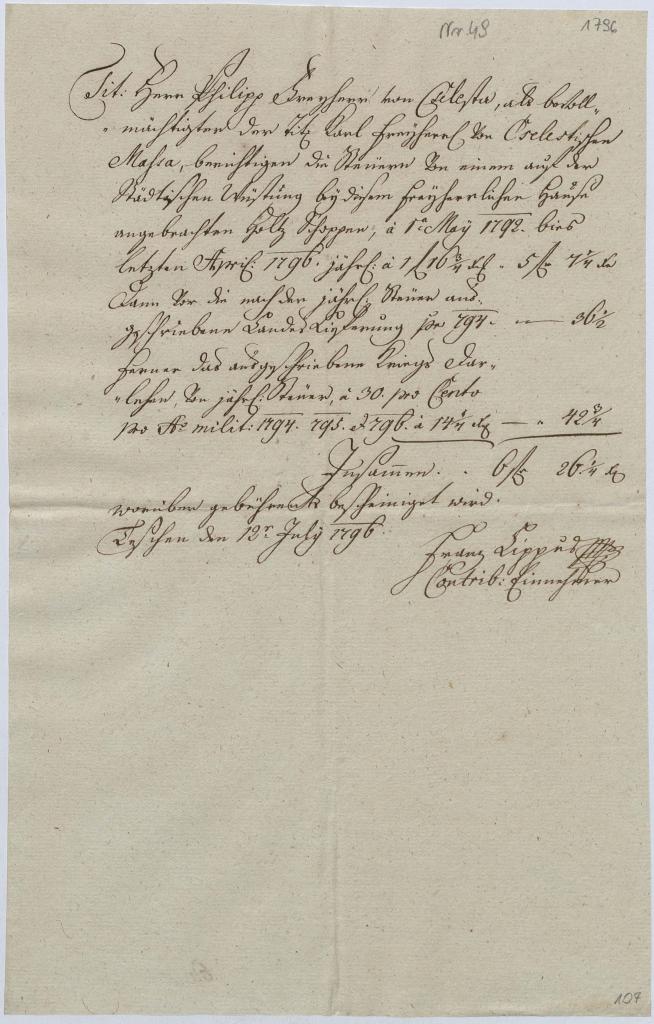 Nr. 49 1796
Tit: Herr Philipp Freyherr von Cselesta, als bevoll-
mächtigter der titz Karl Freyherrl von Cselestischen
Massa, berichtigen die Steuern von einem auf der
Städtischen Wüstung bey diesem Freyherrlichen Hause
angebrachten Holtz Schoppen, à 1a May 1792. bies
letzten April: 1796. jährl: à 1 f 16 3/4 xr 5 f 7 1/4 xr
Dann vor die nach der jährl: Steuer aus-
geschriebene Landes Lieferung pro 794. — 36 1/2
Ferner das ausgeschriebene Kriegs Dar-
lehen, von jährl: Steuer, à 30. pro Cento
pro Ao milit: 1794. 795. & 796. à 14 1/4 xr — 42 3/4
Zusammen. 6 f 26 1/4 xr
worüber gebührend bescheiniget wird.
Teschen den 12n July 1796
Franz Lippus
Contrib: Einnehmer
107